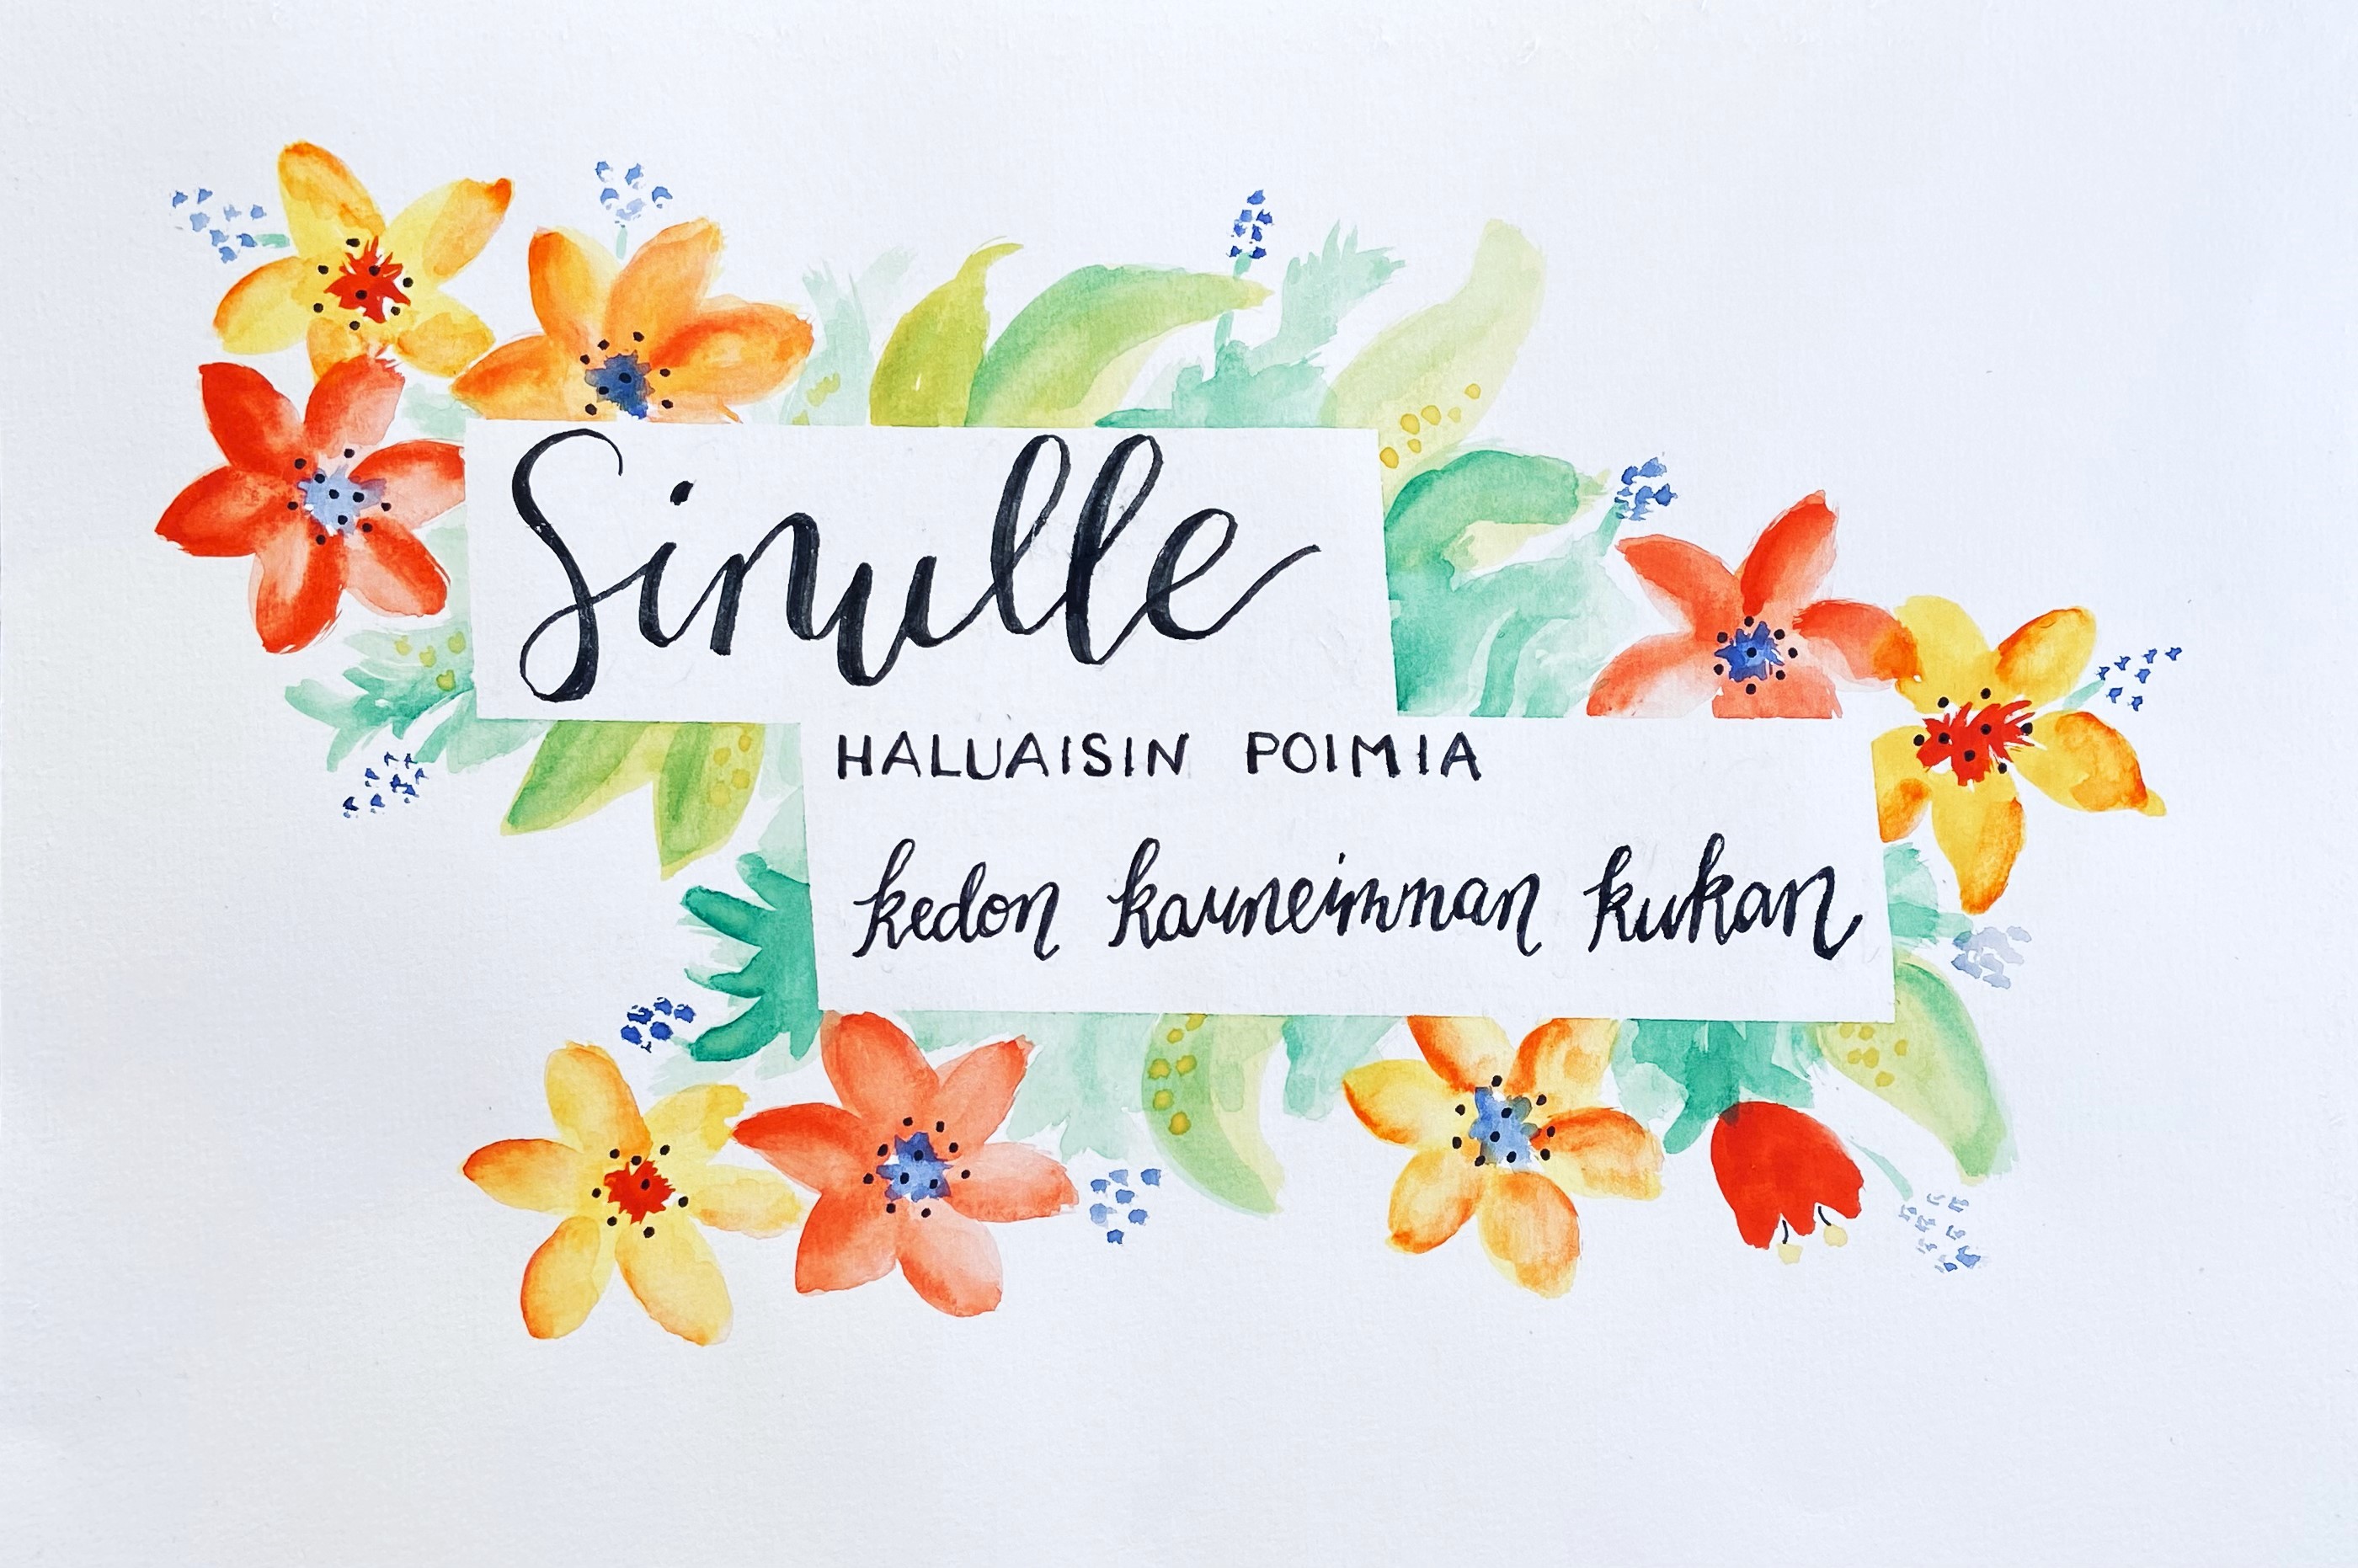 Sinulle
HALUAISIN POIMIA
kedon kauneimman kukan